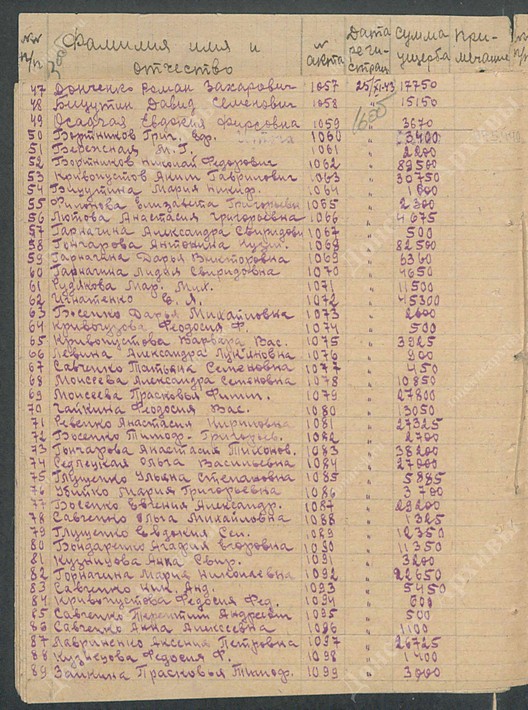 №№ п/п Фамилия имя и отчество № акта Дата регистрац сумма ущерба Примечание №№ п/п
47 Донченко Роман Захарович 1057 25/VI-43 17750
48 Бицутин Давид Семенович 1058 " 15150
49 Осадчая Евдокия Фирсовна 1059 " 3670
50 Бортников Григ. 1060 " 3400
51 М. Г. 1061 " 2200
52 Бортников Николай Федорович 1062 " 89500
53 Кривопустов Аким Гаврилович 1063 " 30750
54 Бицутина Мария Никиф. 1064 "
55 Филонова Елизавета Григорьевн 1065 " 2300
56 Лютова Анастасия Григорьевна 1066 " 4675
57 Гарнагина Александра Свиридовн 1067 " 500
58 Гончарова Антонина Кузьм. 1068 " 82500
59 Гарнагина Дарья Викторовна 1069 " 6360
60 Гарнагина Лидия Свиридовна 1070 " 4650
61 Рудякова Мар. Мих. 1071 " 11500
62 Игнатенко В. Я. 1072 " 45300
63 Босенко Дарья Михайловна 1073 " 2600
64 Кривогузова Феодосия Ф. 1074 " 500
65 Кривопустова Варвара Вас. 1075 " 3925
66 Левшина Александра Лукьяновна 1076 " 900
67 Савченко Татьяна Семеновна 1077 " 450
68 Моисеева Александра Семеновна 1078 " 10850
69 Моисеева Прасковья Филип. 1079 " 27800
70 Чайкина Феодосия Вас. 1080 " 3050
71 Ревенко Анастасия Кириловна 1081 " 27325
72 Босенко Тимоф. Григорьев. 1082 " 2700
73 Гончарова Анастасия Тихонов. 1083 " 38200
74 Редпецкая Ольга Васильевна 1084 " 27000
75 Глущенко Ульяна Степановна 1085 " 5885
76 Убийко Мария Григорьевна 1086 " 3700
77 Босенко Евгения Александр. 1087 " 29200
78 Савченко Ольга Михайловна 1088 " 1325
79 Глущенко Евдокия Сем. 1089 " 12350
80 Бондаренко Агафия Егоровна 1090 " 11350
81 Кузнецова Анна Спир. 1091 " 3200
82 Горнагина Мария Николаевна 1092 " 22650
83 Савченко Ник. Анд. 1093 " 5450
84 Кривопустова Федосия Фед. 1094 " 600
85 Савченко Терентий Андреевич 1095 " 500
86 Савченко Анна Алексеевна 1096 " 1100
87 Лавриненко Аксения Петровна 1097 " 26725
88 Кузнецова Федосия Ф. 1098 " 1400
89 Заикина Прасковья Тимоф. 1099 " 3000